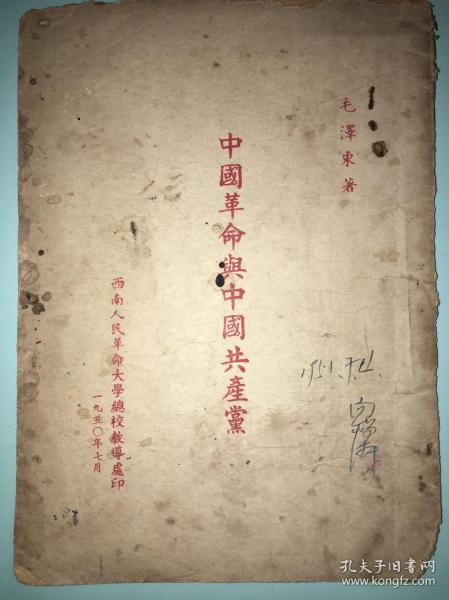 毛澤東著
中國革命與中國共產黨
西南人民革命大學總校教導處印
一九五〇年七月
孔夫子旧书网
www.kongfz.com